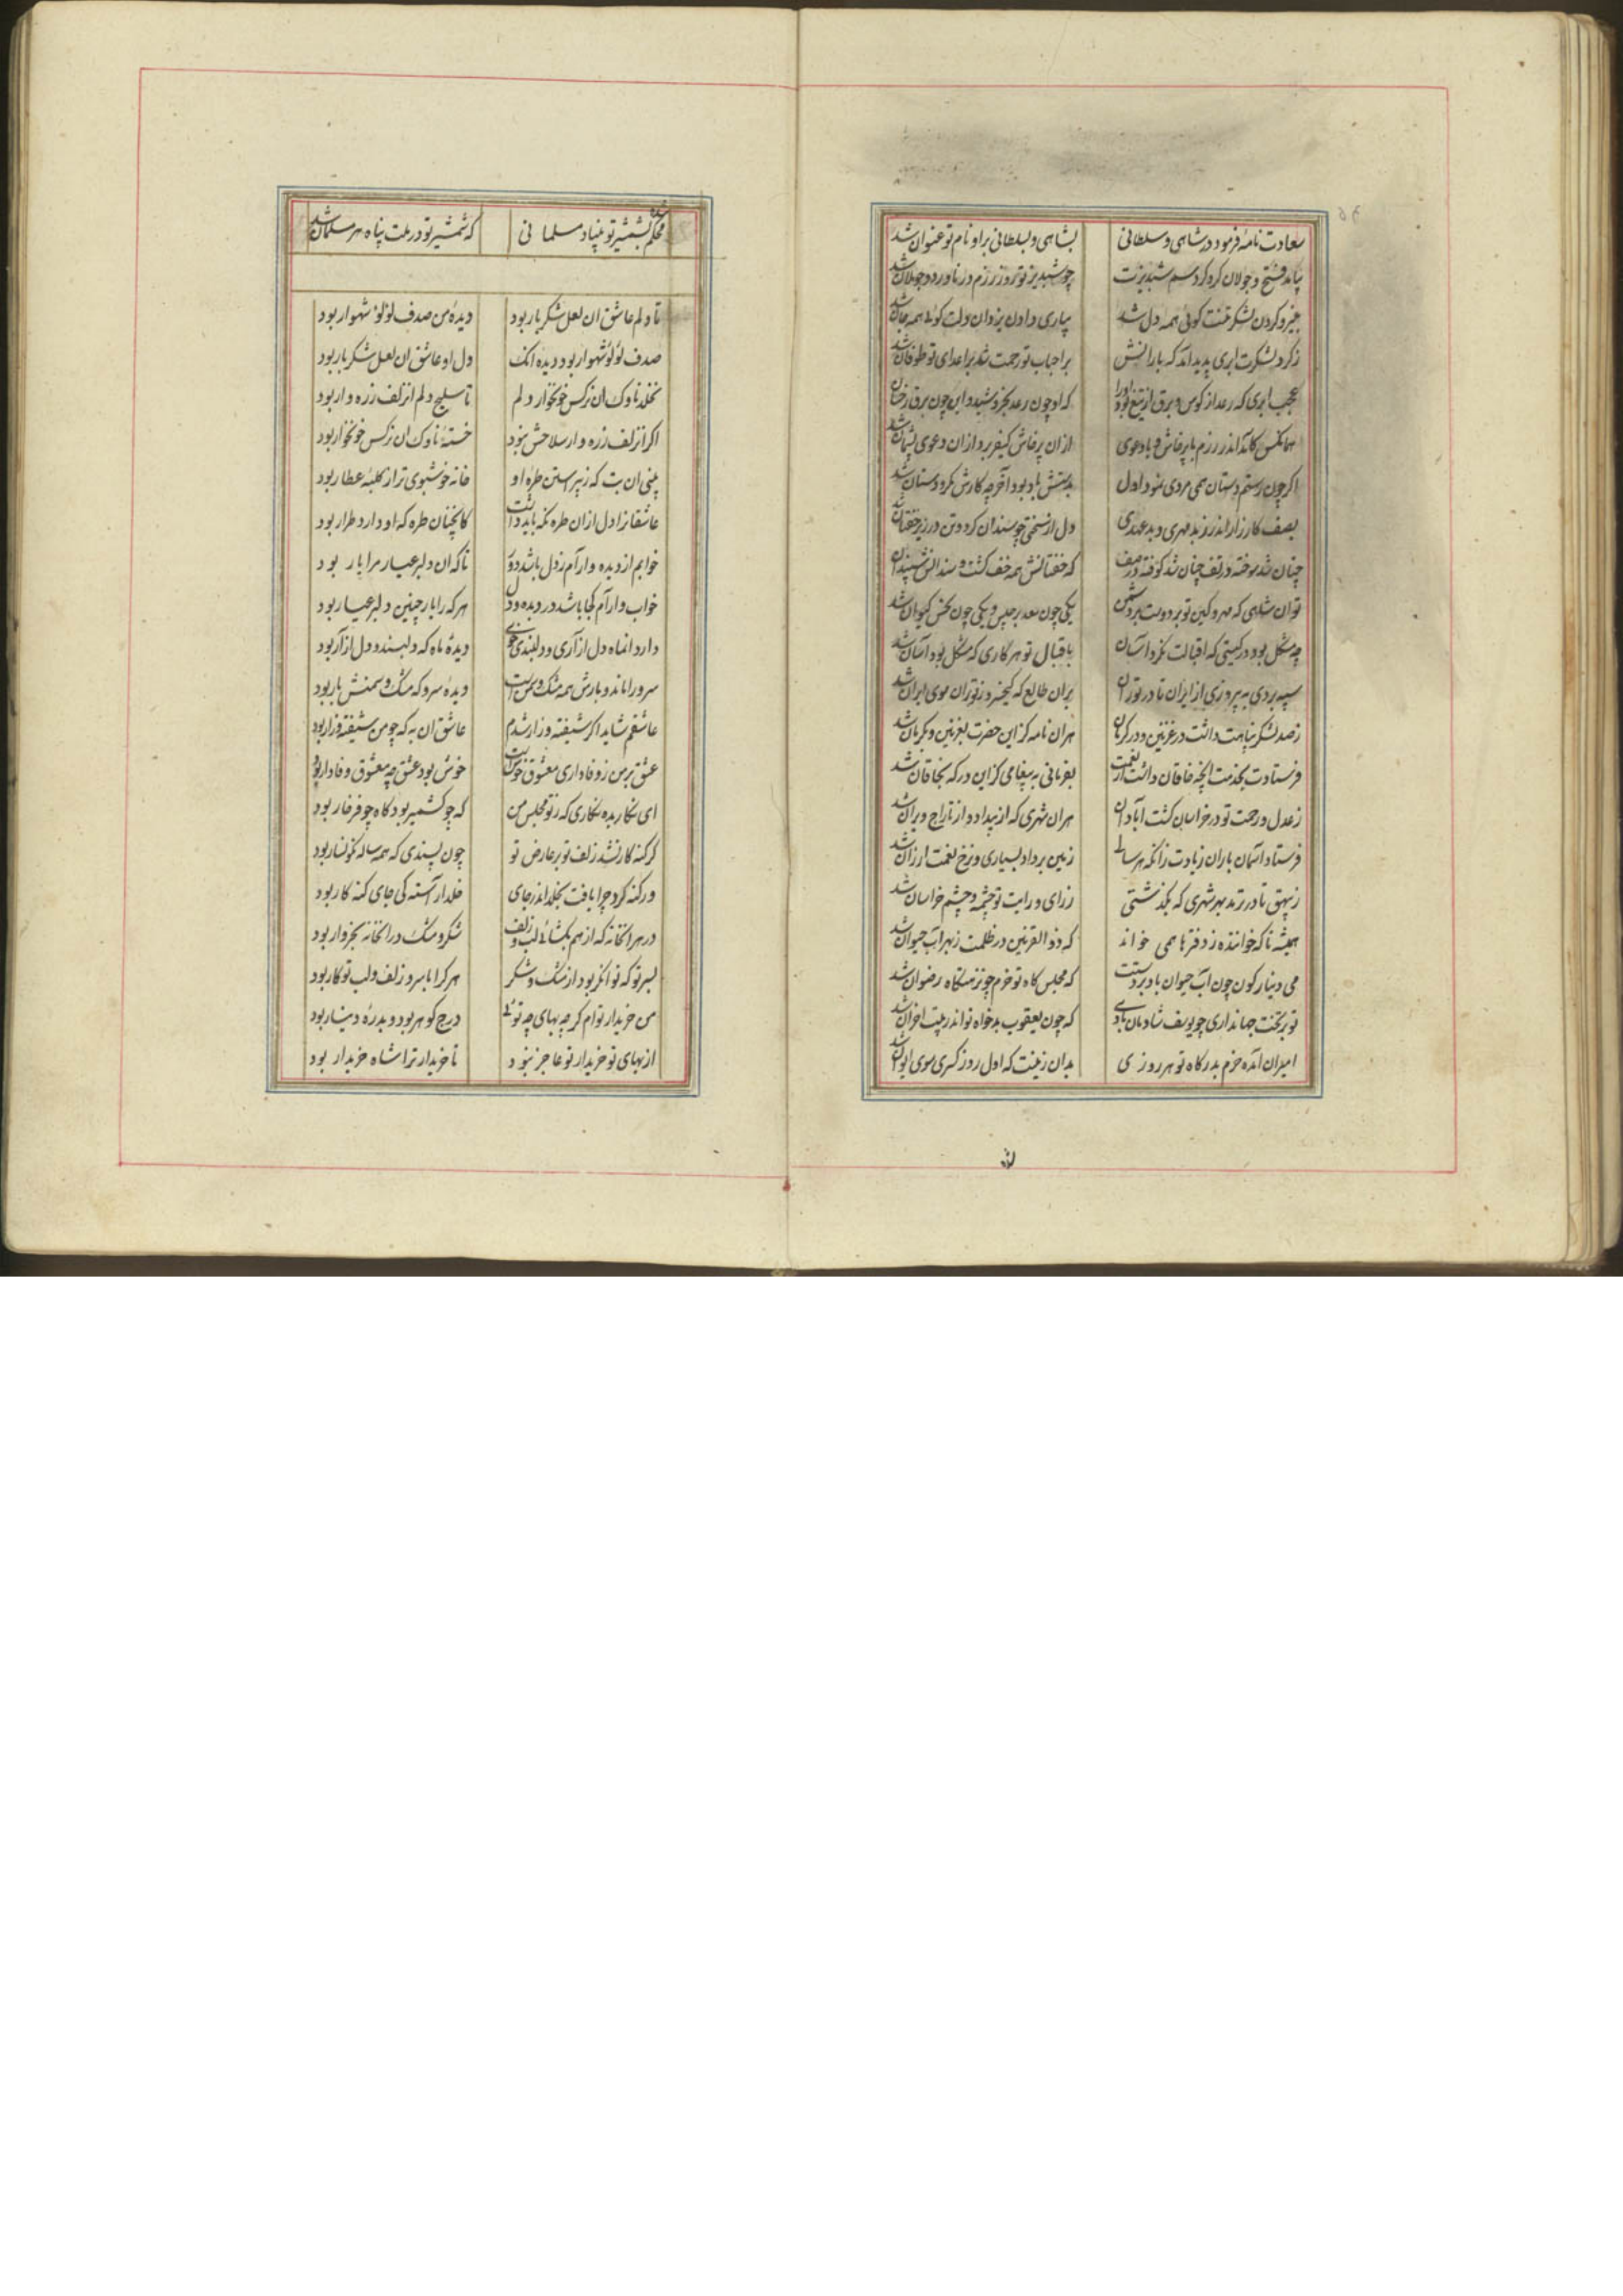 سعادت نامهٔ فرمود در شاهی و سلطانی بشاهی و بسلطانی براو نام تو عنوان شد
بیامد فتح و جولان کرد کرد سم شبدیزت چو شبدیز تو روز رزم در ناورد و جولان شد
بخیرو کردن لشکر تنت کوئی همه دل شد بیاری دادن یزدان دلت کوئی همه جان شد
ز کرد لشکرت ابری پدید آمد که بارانش بر احباب تو رحمت شد بر اعدای تو طوفان شد
عجب ابری که رعد از کوس و برق از تیغ بود اورا که او چون رعد بخروشید و این چون برق رخشان شد
همانکس کآمد اندر رزم با پرخاش و با دعوی از ان پرخاش کیفر برد از ان دعوی پشیمان شد
اکر چون رستم دستان همی مردی نمود اول بدستش باد بود آخر چه کارش مکر و دستان شد
بصف کارزار اندر ز بد مهری و بد عهدی دل از سختی چو سندان کرد و تن در زیر خفتان شد
چنان شد سوخته در تف چنان شد کوفته در صف که خفتانش همه خف کشت و سندانش سپندان شد
تو آن شاهی که مهر و کین تو بر دوست و بر دشمن یکی چون سعد برجیس و یکی چون نحس کیوان شد
چه مشکل بود در کیتی که اقبالت نکرد آسان باقبال تو هر کاری که مشکل بود آسان شد
سپه بردی به پیروزی از ایران تا در توران بران طالع که کیخسرو ز توران سوی ایران شد
ز صد لشکر نیابت داشت در غزنین و در کرمان هران نامه کز این حضرت بغزنین و بکرمان شد
فرستادت بخدمت انچه خاقان داشت از نعمت بفرمانی به پیغامی کز این درکه بخاقان شد
ز عدل و رحمت تو در خراسان کشت آبادان هران شهری که از بیداد و از تاراج ویران شد
فرستاد آسمان باران زیادت زانکه هر سالی زمین برداد بسیاری و نرخ نعمت ارزان شد
ز بیهق تا در ترمد بهر شهری که بکذشتی ز رای و رایت تو چشمه و چشم خراسان شد
همیشه تا که خواننده ز دفترها همی خواند که ذو القرنین در ظلمت ز بهر آب حیوان شد
می دینار کون چون آب حیوان باد بر دستت که مجلس کاه تو خرم چو نزهتکاه رضوان شد
تو بر تخت جهانداری چو یوسف شادمان بادی که چون یعقوب بدخواه تو اندر بیت احزان شد
امیران آمده خرم بدرکاه تو هر روزی بدان زینت که اول روز کسری سوی ایوان شد
محکم بشمشیر تو بنیاد مسلمانی شده که شمشیر تو در ملت پناه هر مسلمان شد
تا دلم عاشق ان لعل شکر بار بود دیدهٔ من صدف لؤلؤ شهوار بود
صدف لؤلؤ شهوار بود دیده انک دل او عاشق ان لعل شکر بار بود
نخلد ناوک ان نرکس خونخوار دلم تا سلیح دلم از زلف زره وار بود
اکر از زلف زره وار سلاحش نبود خستهٔ ناوک ان نرکس خونخوار بود
بینی ان بت که ز پیراستن طرهٔ او خانه خوشبوی تر از کلبهٔ عطار بود
عاشقانرا دل از ان طره نکه باید داشت کانچنان طره که او دارد طرار بود
خوابم از دیده و آرام ز دل باشد دور تا که ان دلبر عیار مرا یار بود
خواب و آرام کجا باشد در دیده و دل هر که را یار چنین دلبر عیار بود
دارد انماه دل آزاری و دلبندی خوی دیدهٔ ماه که دلبند و دل آزار بود
سرو را ماند و بارش همه مشک و سمن است دیدهٔ سرو که مشک و سمنش بار بود
عاشقم شاید اکر شیفته و زار شدم عاشق ان به که چو من شیفته و زار بود
عشق بر من ز وفاداری معشوق خوش است خوش بود عشق چو معشوق وفادار بود
ای نکار بده نکاری که ز تو مجلس من که چو کشمیر بود کاه چو فرخار بود
کر کنه کار نشد زلف تو بر عارض تو چون پسندی که همه ساله نکونسار بود
ور کنه کرد چرا یافت بخلد اندر جای خلد آراسته کی جای کنه کار بود
در هر انخانه که از هم بکشائی لب و زلف شکر و مشک در انخانه بخروار بود
بسر تو که توانکر بود از مشک و شکر هر کرا با سر و زلف و لب تو کار بود
من خریدار توام کر چه بهای چه توئی درج کوهر بود و بدرهٔ دینار بود
از بهای تو خریدار تو عاجز نبود تا خریدار ترا شاه خریدار بود